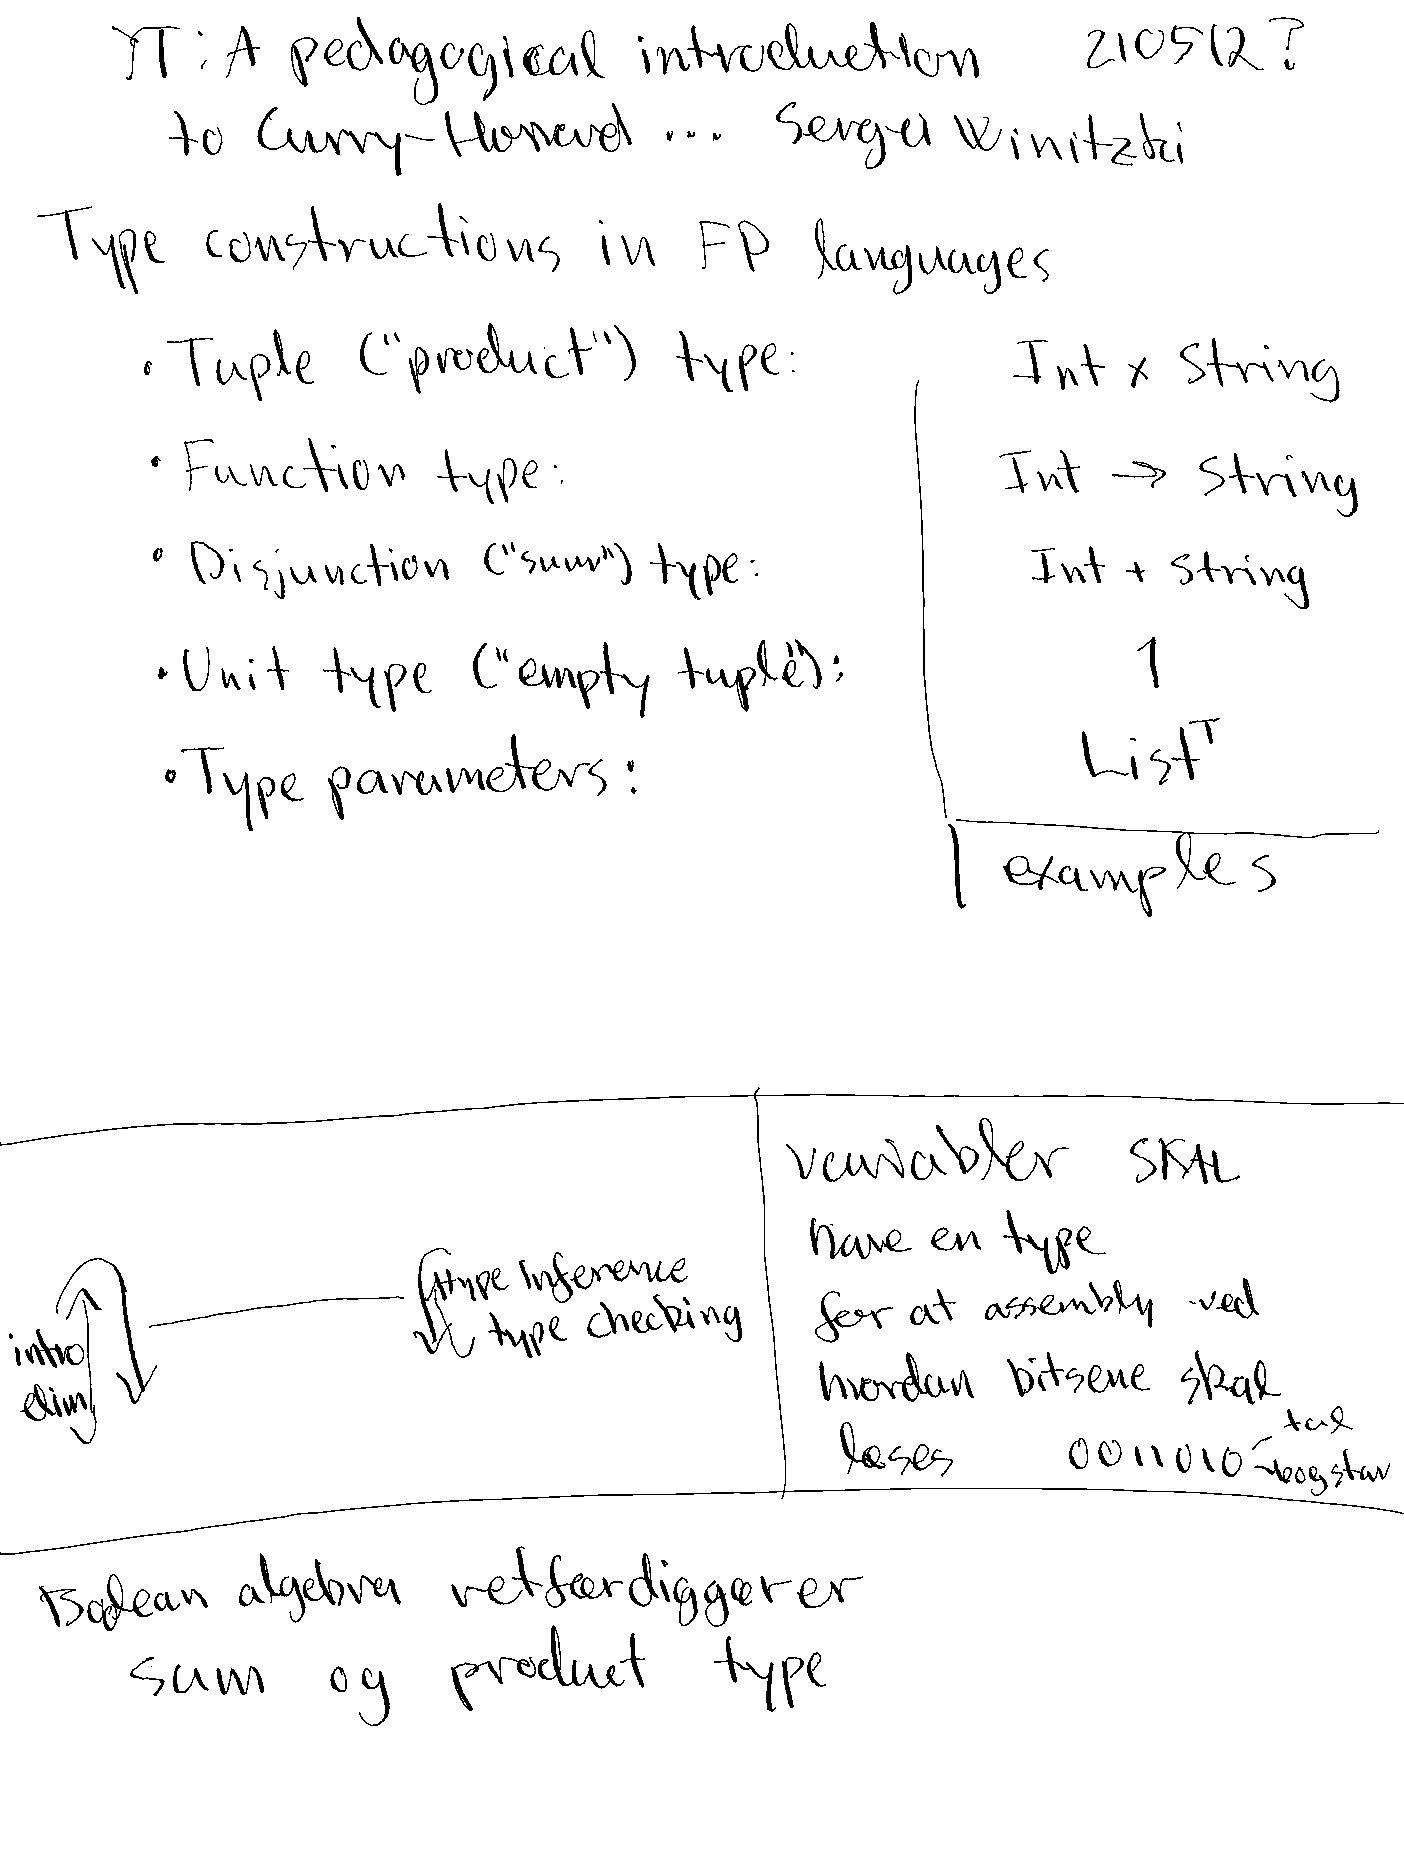 YT: A pedagogical introduction 210512?
to Curry-Howard ... Sergei Winitzki
Type constructions in FP languages
• Tuple ("product") type: Int × String
• Function type: Int → String
• Disjunction ("sum") type: Int + String
• Unit type ("empty tuple"): 1
• Type parameters: List^T
examples
intro
elim
type inference
type checking
variabler SKAL
have en type
før at assembly ved
hvordan bitsene skal
læses 0011010
tal
bogstav
Boolean algebra retfærdiggører
sum og product type